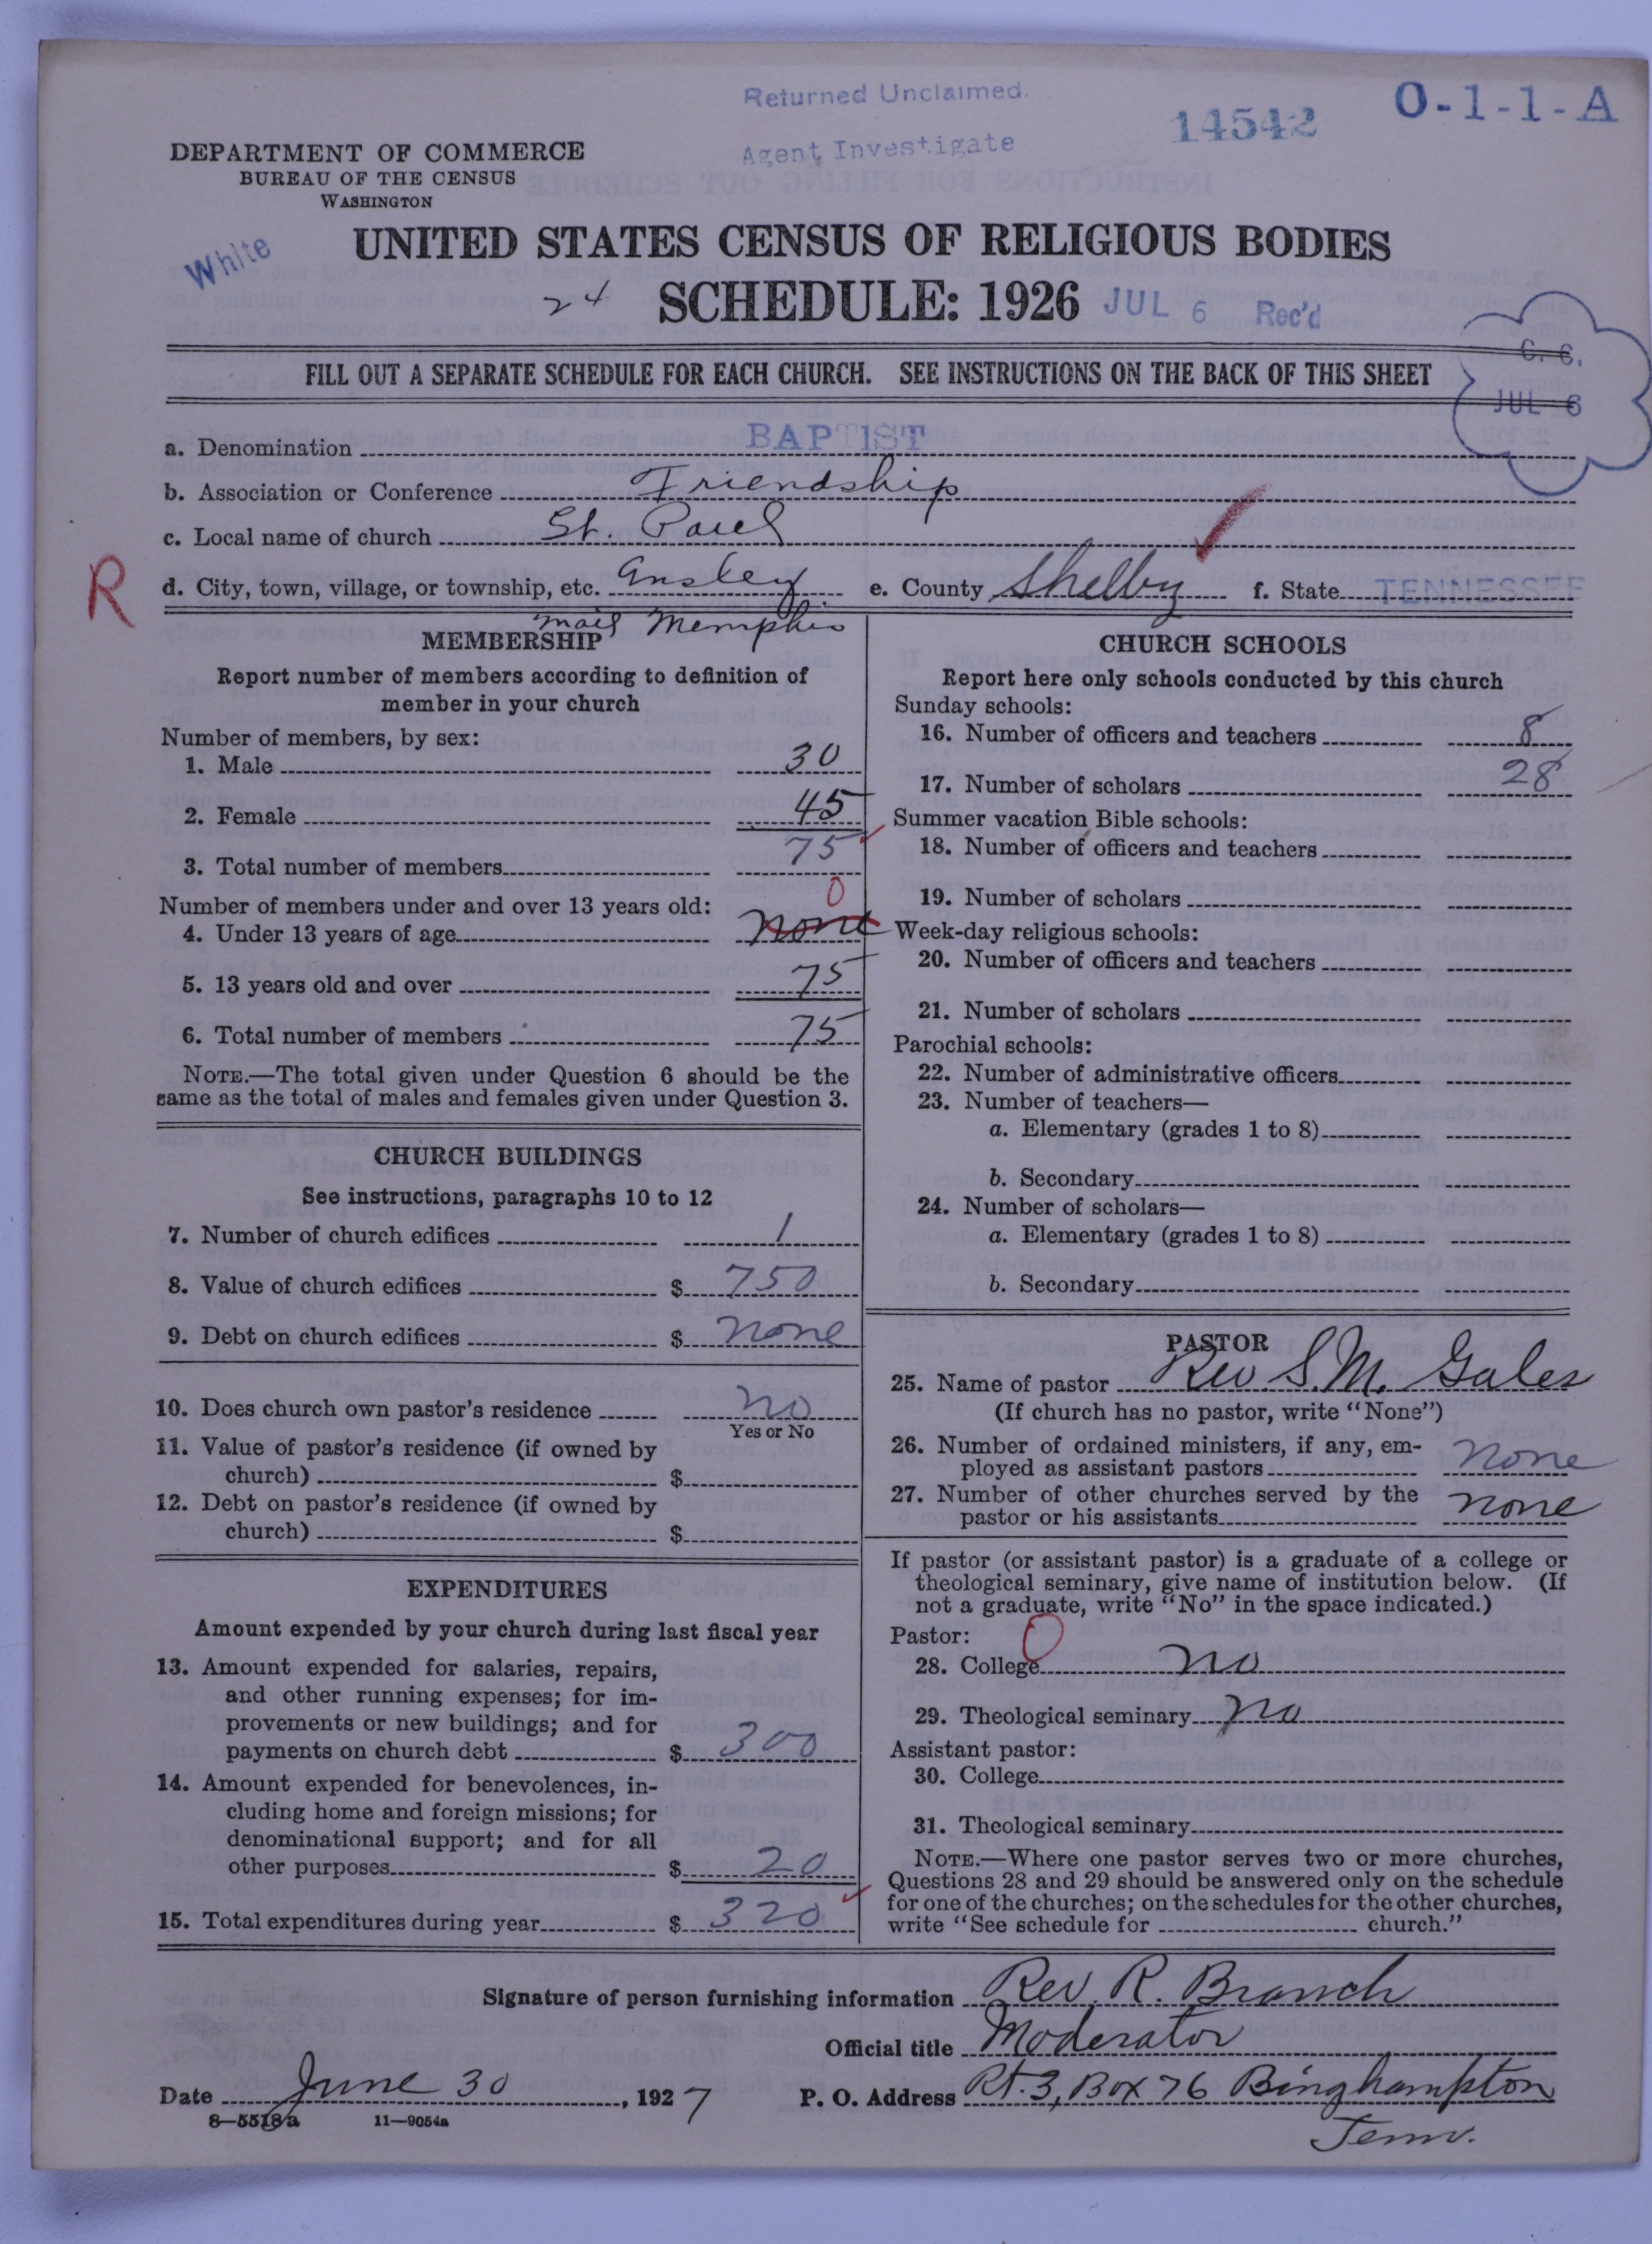 Returned Unclaimed.
Agent Investigate
14542
O-1-1-A
DEPARTMENT OF COMMERCE
BUREAU OF THE CENSUS
WASHINGTON
White
UNITED STATES CENSUS OF RELIGIOUS BODIES
24
SCHEDULE: 1926
JUL 6 Rec'd
C. C.
JUL 6
FILL OUT A SEPARATE SCHEDULE FOR EACH CHURCH. SEE INSTRUCTIONS ON THE BACK OF THIS SHEET
a. Denomination BAPTIST
b. Association or Conference Friendship
c. Local name of church St. Paul
R
d. City, town, village, or township, etc. Ansley e. County Shelby f. State TENNESSEE
mail Memphis
MEMBERSHIP
Report number of members according to definition of
member in your church
Number of members, by sex:
1. Male 30
2. Female 45
3. Total number of members 75
Number of members under and over 13 years old: 0
4. Under 13 years of age none
5. 13 years old and over 75
6. Total number of members 75
NOTE.—The total given under Question 6 should be the
same as the total of males and females given under Question 3.
CHURCH BUILDINGS
See instructions, paragraphs 10 to 12
7. Number of church edifices 1
8. Value of church edifices $ 750
9. Debt on church edifices $ none
10. Does church own pastor's residence no
Yes or No
11. Value of pastor's residence (if owned by
church) $
12. Debt on pastor's residence (if owned by
church) $
EXPENDITURES
Amount expended by your church during last fiscal year
13. Amount expended for salaries, repairs,
and other running expenses; for im-
provements or new buildings; and for
payments on church debt $ 300
14. Amount expended for benevolences, in-
cluding home and foreign missions; for
denominational support; and for all
other purposes $ 20
15. Total expenditures during year $ 320
CHURCH SCHOOLS
Report here only schools conducted by this church
Sunday schools:
16. Number of officers and teachers 8
17. Number of scholars 28
Summer vacation Bible schools:
18. Number of officers and teachers
19. Number of scholars
Week-day religious schools:
20. Number of officers and teachers
21. Number of scholars
Parochial schools:
22. Number of administrative officers
23. Number of teachers—
a. Elementary (grades 1 to 8)
b. Secondary
24. Number of scholars—
a. Elementary (grades 1 to 8)
b. Secondary
PASTOR
25. Name of pastor Rev S. M. Gales
(If church has no pastor, write "None")
26. Number of ordained ministers, if any, em-
ployed as assistant pastors none
27. Number of other churches served by the
pastor or his assistants none
If pastor (or assistant pastor) is a graduate of a college or
theological seminary, give name of institution below. (If
not a graduate, write "No" in the space indicated.)
Pastor: 0
28. College no
29. Theological seminary no
Assistant pastor:
30. College
31. Theological seminary
NOTE.—Where one pastor serves two or more churches,
Questions 28 and 29 should be answered only on the schedule
for one of the churches; on the schedules for the other churches,
write "See schedule for church."
Signature of person furnishing information Rev. R. Branch
Official title Moderator
Date June 30, 1927 P. O. Address Rt. 3, Box 76 Binghampton
Tenn.
8—5518a 11—9054a